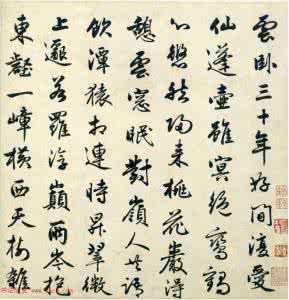 雲臥三十年好閒復愛
仙蓬壺雖冥絕鸞鶴
心悠然歸來桃花巖得
憩雲窓眠對嶺人共語
飲潭猿相連時昇翠微
上邈若羅浮巔兩岑抱
東壑一嶂橫西天樹雜